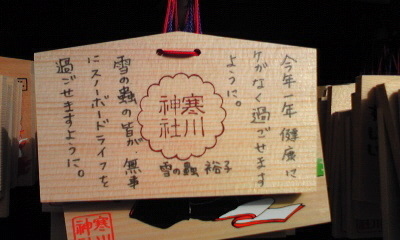 今年一年健康に
ケガなく過ごせます
ように。
寒川
神社
雪の蟲の皆が、無事
にスノーボードライフを
過ごせますように。
雪の蟲 裕子
寒川
神社